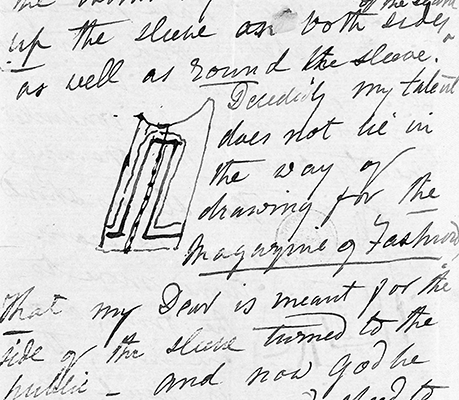 of the
up the sleeve on both sides
as well as round the sleeve.
Decidedly my talent
does not lie in
the way of
drawing for the
Magazine of Fashion,
That my Dear is meant for the
side of the sleeve turned to the
public - and now God be
to